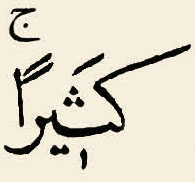 كَثِيرًا ۚ